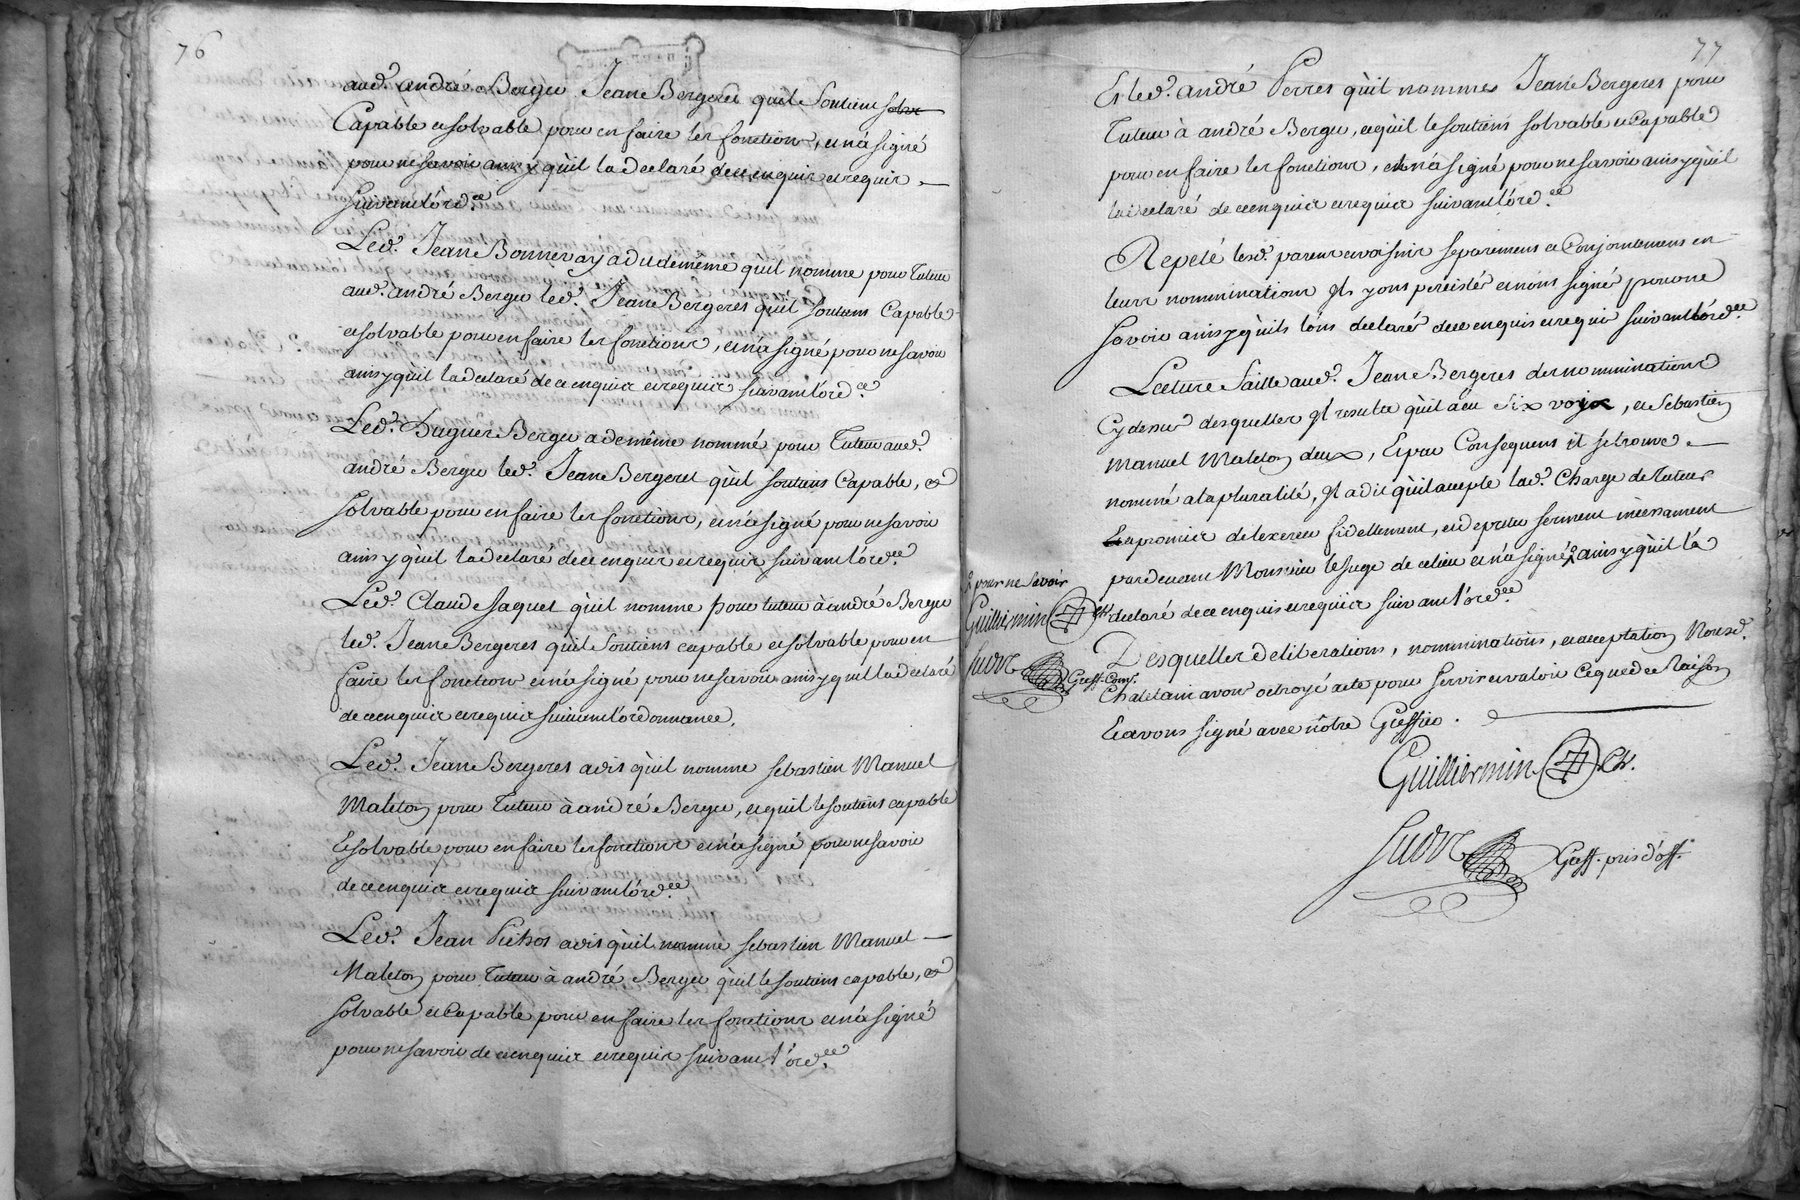 76
aud. andré Berger Jean Bergeret quil Soutient solv
Capable et solvable pour en faire les fonctions, et n'a signé
pour ne savoir ainsy qu'il la declaré de ce enquis et requis
suivant l'ord.ce
Led. Jean Bonnevay a dit de même quil nomme pour Tuteur
aud. andré Berger led. Jean Bergeres quil soutiens Capable
et solvable pour en faire les fonctions, et n'a signé pour ne savoir
ainsy qu'il la declaré de ce enquis et requis suivant l'ord.ce
Led. Hugues Berger a de même nommé pour Tuteur aud.
andré Berger led. Jean Bergeret qu'il soutiens Capable, et
solvable pour en faire les fonctions, et n'a signé pour ne savoir
ainsy qu'il la declaré de ce enquis et requis suivant l'ord.ce
Led. Claude Jaquet qu'il nomme pour tuteur à andré Berger
led. Jean Bergeres quil Soutiens capable et solvable pour en
faire les fonctions et n'a signé pour ne savoir ainsy quil la declaré
de ce enquis et requis suivant l'ordonnance.
Led. Jean Bergeres a dis qu'il nomme sebastien Manuel
Maleton pour Tuteur à andré Berger, et quil le soutiens capable
Et solvable pour en faire les fonctions et n'a signé pour ne savoir
de ce enquis et requis suivant l'ord.ce
Led. Jean Pichot a dis qu'il nomme sebastien Manuel
Maleton pour Tuteur à andré Berger qu'il le soutiens capable, et
solvable et Capable pour en faire les fonctions et n'a signé
pour ne savoir de ce enquis et requis suivant l'ord.ce
77
Et led. andré Perres qu'il nommes Jean Bergeres pour
Tuteur à andré Berger, et qu'il le soutiens solvable et Capable
pour en faire les fonctions, et n'a signé pour ne savoir ainsy qu'il
la declaré de ce enquis et requis suivant l'ord.ce
Repeté lesd. parens et voisins separemens et Conjointemens en
leurs nomminations Ils y ons persistés et nons signé pour ne
savoir ainsy qu'ils lons declaré de ce enquis et requis suivant l'ord.ce
Lecture faitte aud. Jean Bergeres des nomminations
Cy dessus desquelles Il resulte qu'il a eu Six voix, et Sebastien
Manuel Maleton deux, Et par Consequens il se trouve
nommé a la pluralité, Il a dit qu'il accepte lad. Charge de Tuteur
Et a promis de l'exercer fidellement, et de preter serment incessament
pardevant Monsieur le Juge de ce lieu et n'a signé ainsy qu'il l'a
declaré de ce enquis et requis suivant l'ord.ce
pour ne savoir
Guilliermin Ch.
Sucre Greff. Com.
Desquelles deliberations, nomminations, et acceptation Nousd.
Chatelain avons octroyé acte pour servir et valoir ce que de Raison
Et avons signé avec nôtre Greffier.
Guilliermin Ch.
Sucre Greff. pris d'off.